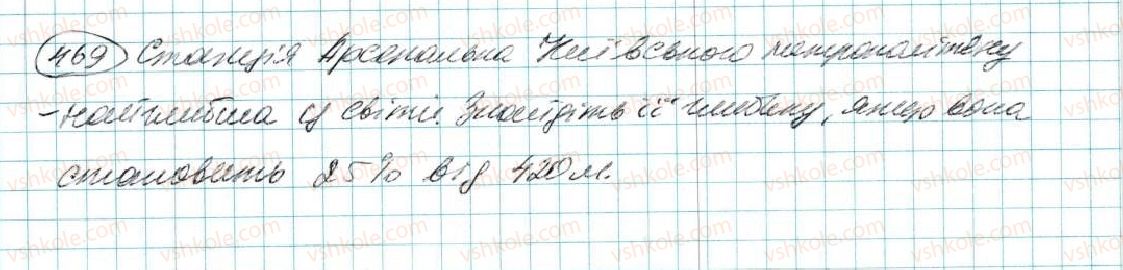 469 Станція Арсенальна Київського метрополітену
- найглибша у світі. Знайдіть її глибину, якщо вона
становить 25% від 420 м.